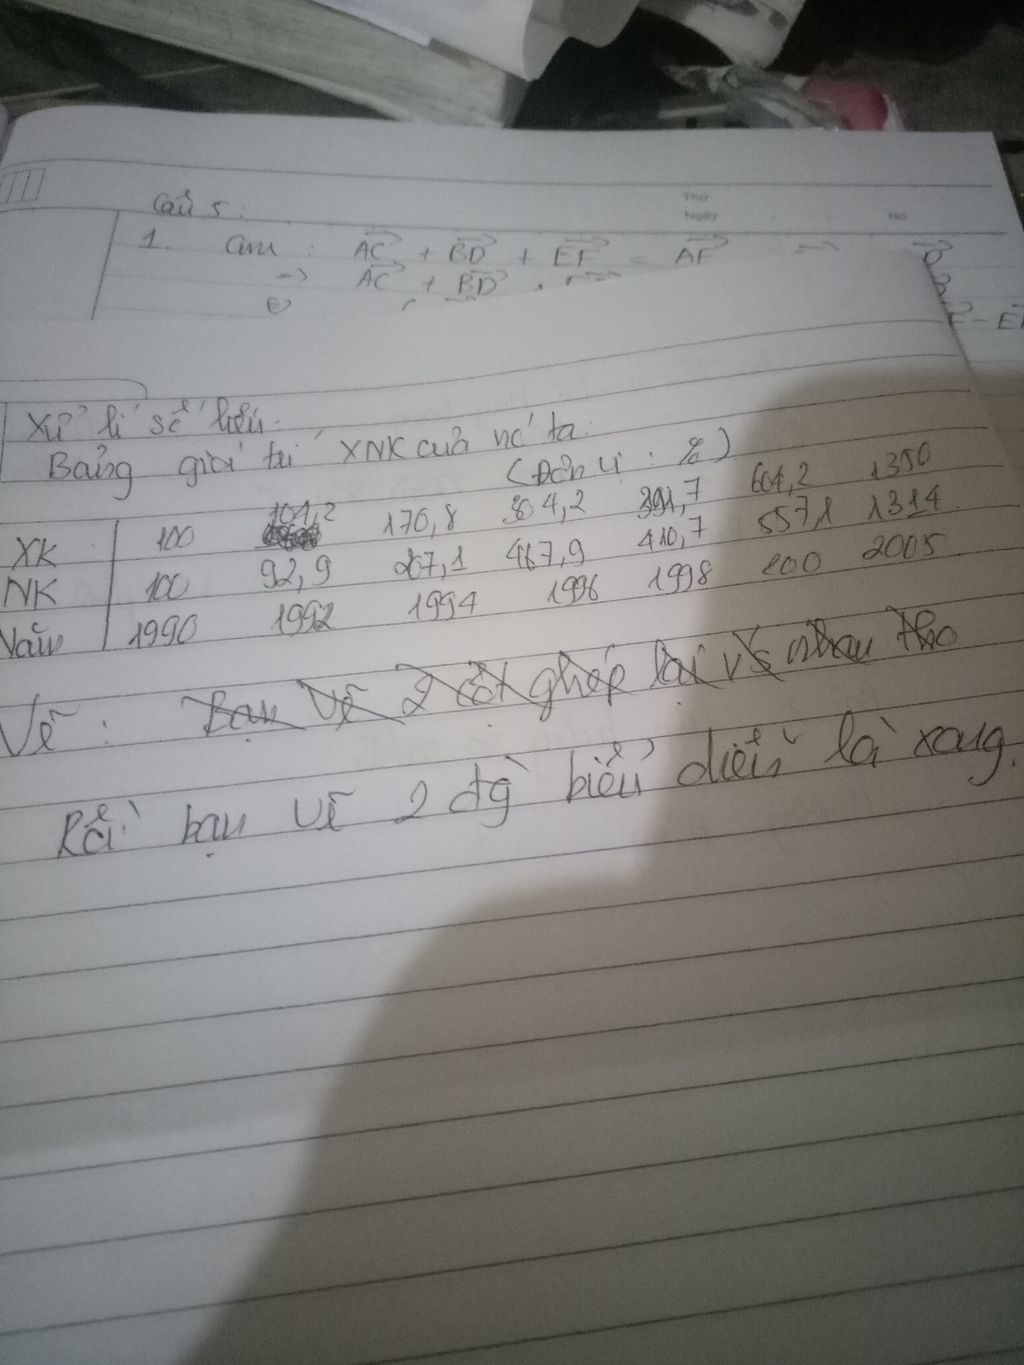 Thứ
Ngày No
Câu 5:
1. Cm : AC + BD + EF = AF
=> AC + BD
F - EF
Xử lí số liệu.
Bảng giá trị XNK của nc ta.
(Đơn vị : %)
XK 100 101,2 170,8 304,2 391,7 601,2 1350
NK 100 92,9 207,1 467,9 410,7 557,1 1314
Năm 1990 1992 1994 1996 1998 200 2005
Vẽ : Bạn vẽ 2 cột ghép lại vs nhau tho
Rồi bạn vẽ 2 đg biểu diễn là xong.